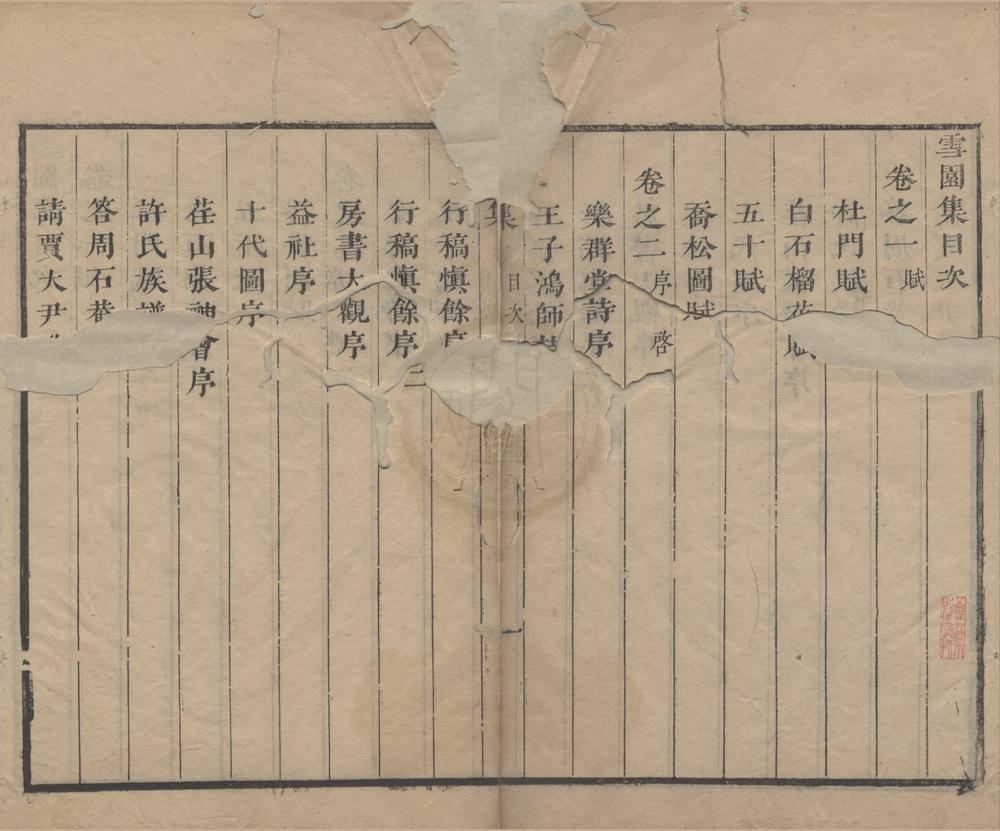 雪園集目次
卷之一 賦
杜門賦
白石榴花賦
五十賦
喬松圖賦
卷之二 序 啓
樂群堂詩序
王子鴻師
集 目次
行稿愼餘序
行稿愼餘序二
房書大觀序
益社序
十代圖序
茌山張 會序
許氏族譜
答周石菴
請賈大尹